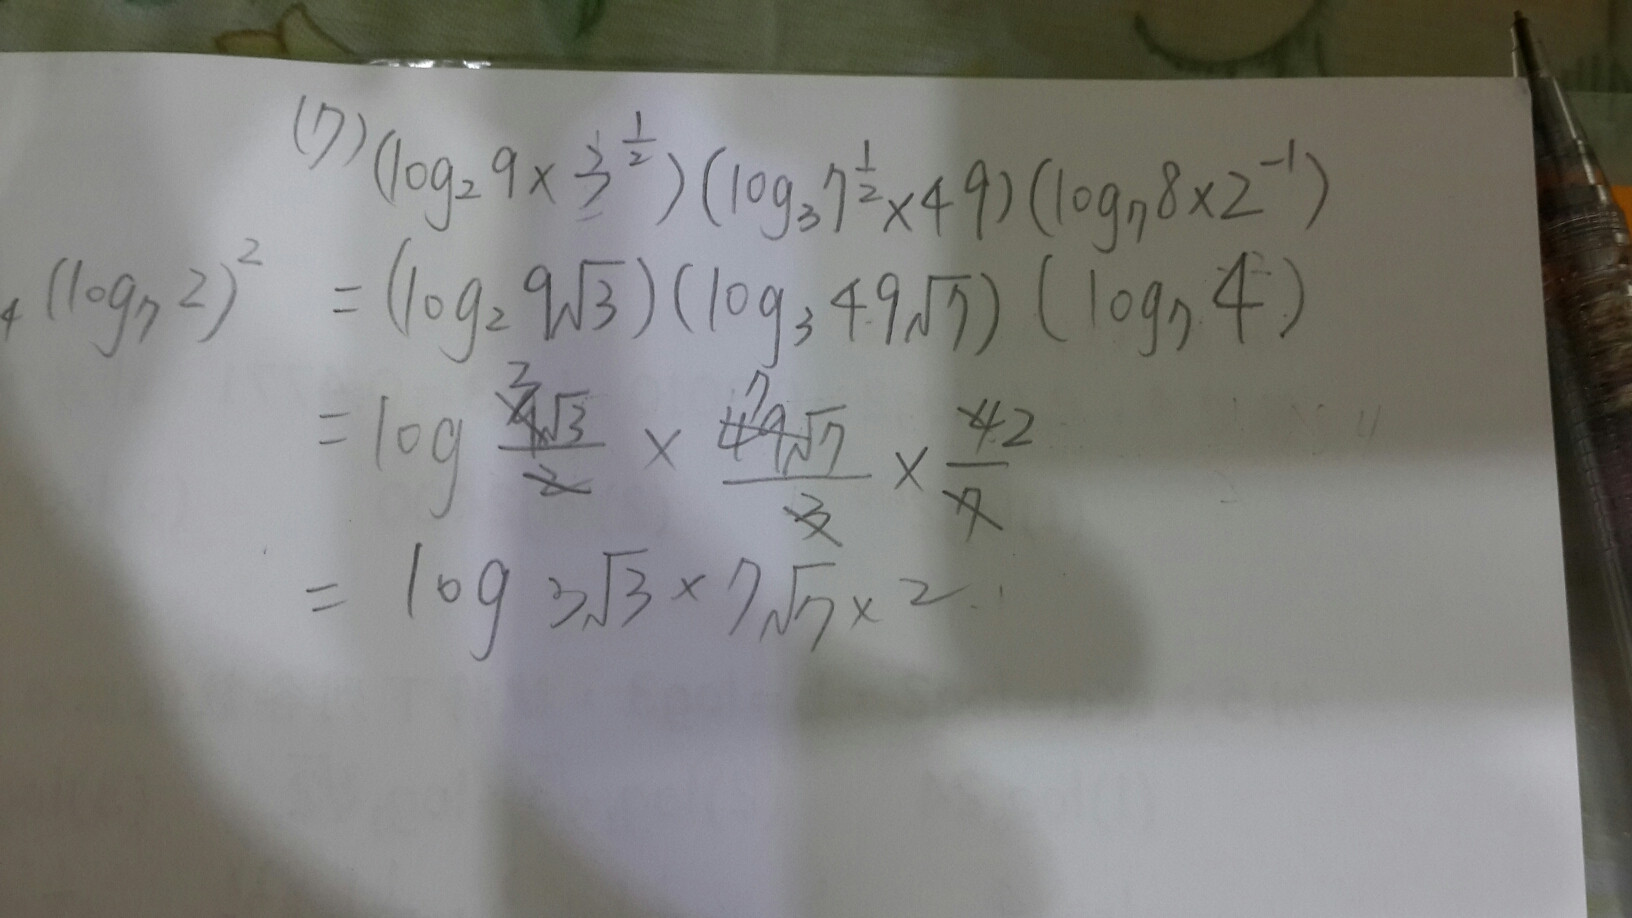 (7) (log₂ 9 × 3^½) (log₃ 7^½ × 49) (log₇ 8 × 2⁻¹)
4 (log₇ 2)² = (log₂ 9√3) (log₃ 49√7) (log₇ 4)
= log 9√3/2 × 49√7/3 × 4/7
= log 3√3 × 7√7 × 2